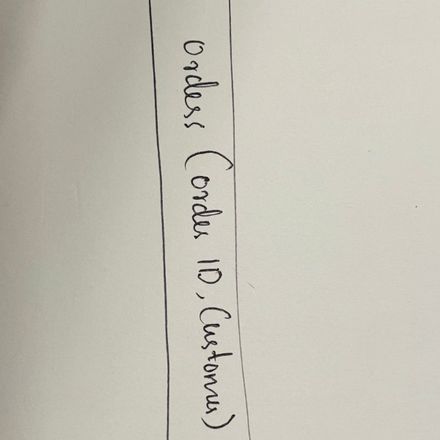 Orders (order ID, Customer)